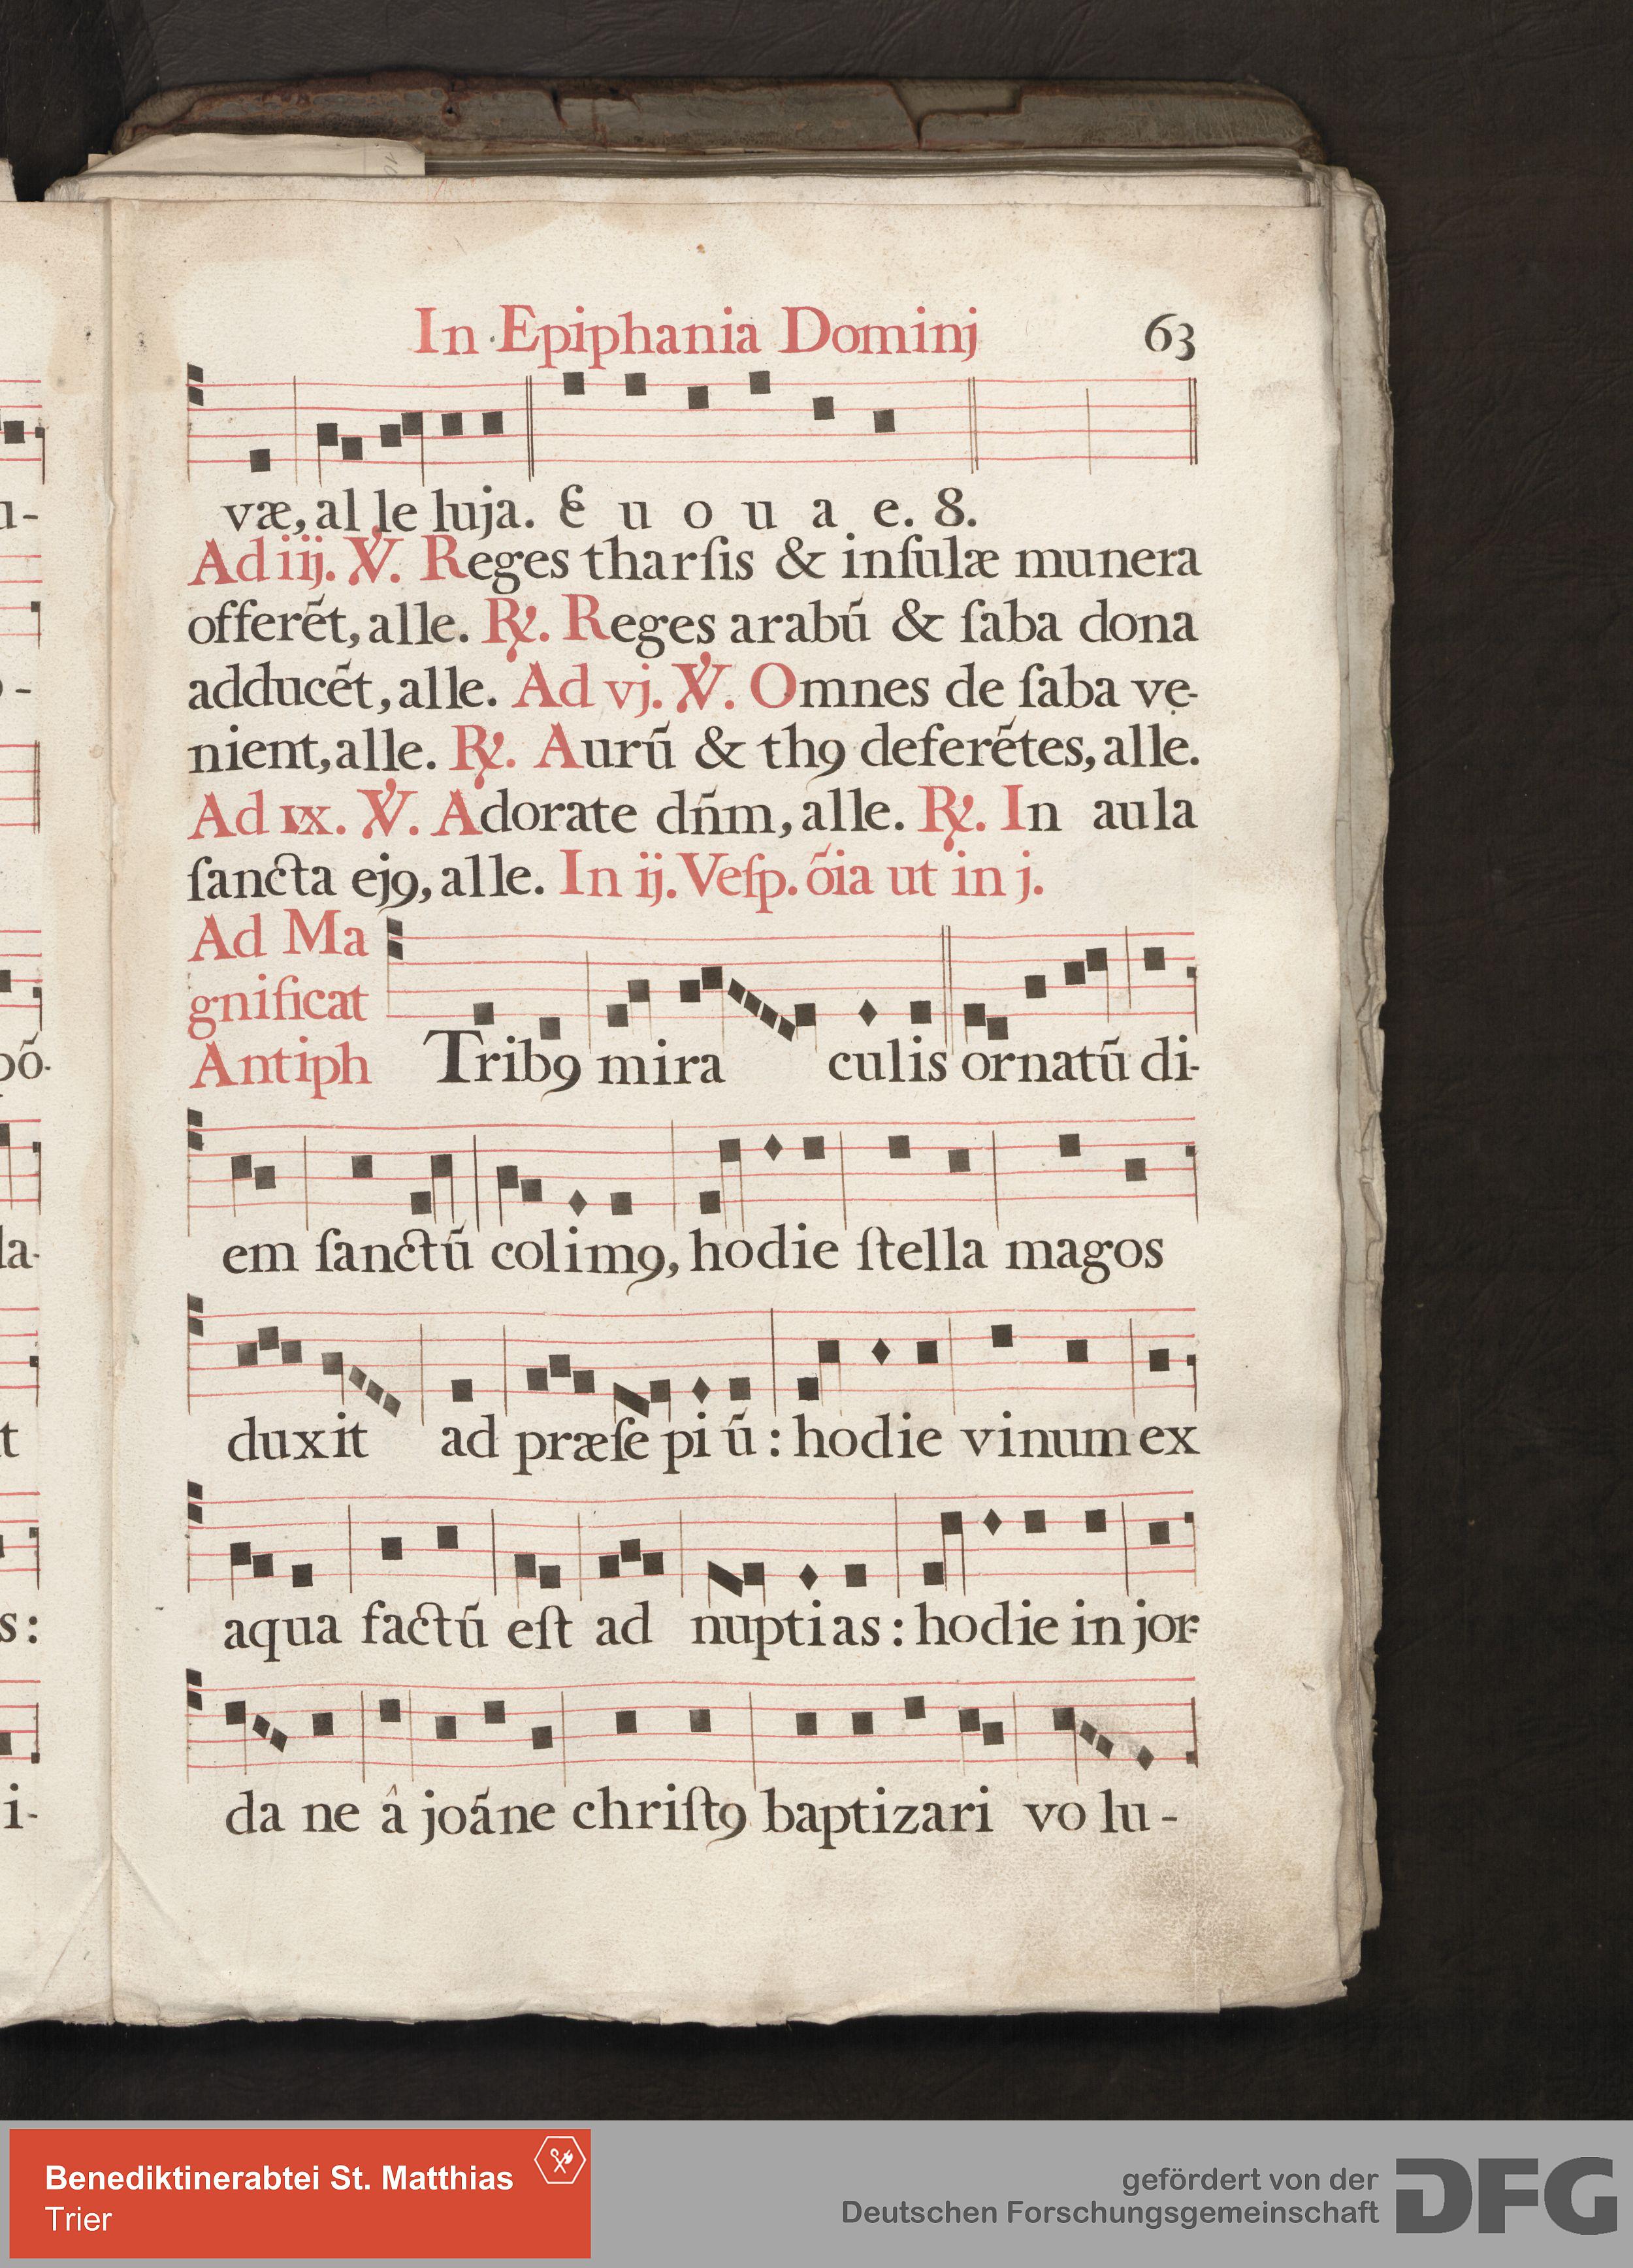 In Epiphania Dominj 63
væ, al le luja. E u o u a e. 8.
Ad iij. ℣. Reges tharſis & inſulæ munera
offerẽt, alle. ℟. Reges arabũ & ſaba dona
adducẽt, alle. Ad vj. ℣. Omnes de ſaba ve-
nient, alle. ℟. Aurũ & thꝯ deferẽtes, alle.
Ad ıx. ℣. Adorate dñm, alle. ℟. In aula
ſancta ejꝯ, alle. In ij. Veſp. õia ut in j.
Ad Ma
gnificat
Antiph Tribꝯ mira culis ornatũ di-
em ſanctũ colimꝯ, hodie ſtella magos
duxit ad præſe pi ũ : hodie vinum ex
aqua factũ eſt ad nuptias : hodie in jor-
da ne â joãne chriſtꝯ baptizari vo lu -
Benediktinerabtei St. Matthias
Trier
gefördert von der
Deutschen Forschungsgemeinschaft
DFG